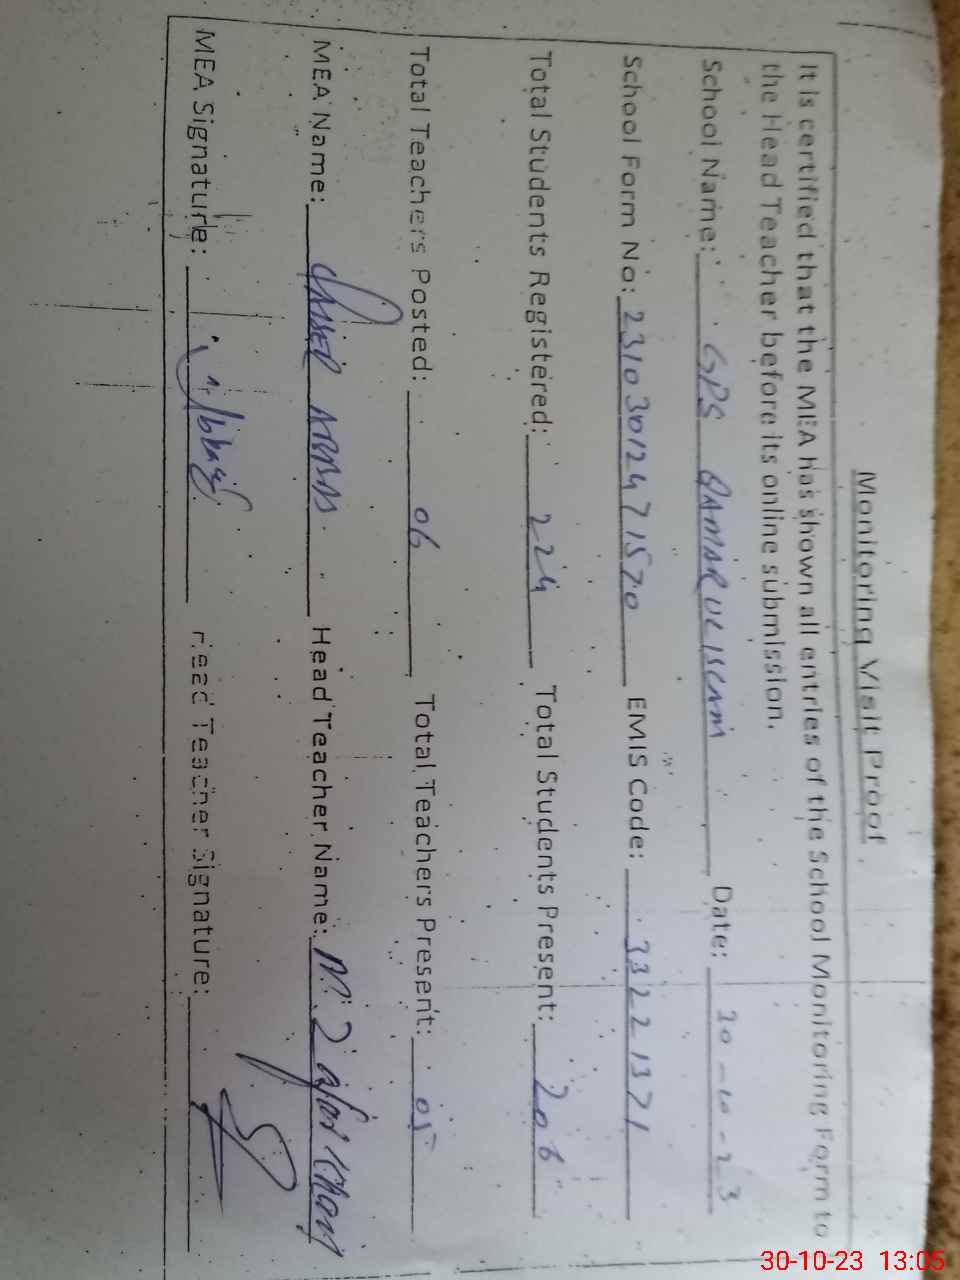 Monitoring Visit Proof
It is certified that the MEA has shown all entries of the School Monitoring Form to
the Head Teacher before its online submission.
School Name: GPS QAMAR UL ISLAM Date: 30-10-23
School Form No: 23103012471570 EMIS Code: 33221371
Total Students Registered: 224 Total Students Present: 206
Total Teachers Posted: 06 Total Teachers Present: 05
MEA Name: ABBAS Head Teacher Name: M. Zafar
MEA Signature: Head Teacher Signature:
30-10-23 13:05